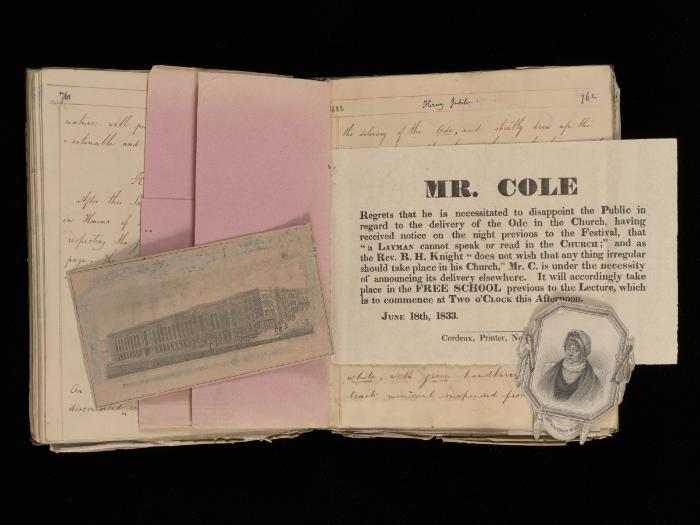 761
nature will
estenable and
After this
in Honour of
respecting the
page. The
An
discoursed
Hervey Jubilee
762
the delivery of the Ode, and shortly drew up the
MR. COLE
Regrets that he is necessitated to disappoint the Public in
regard to the delivery of the Ode in the Church, having
received notice on the night previous to the Festival, that
“a LAYMAN cannot speak or read in the CHURCH;” and as
the Rev. R. H. Knight “does not wish that any thing irregular
should take place in his Church,” Mr. C. is under the necessity
of announcing its delivery elsewhere. It will accordingly take
place in the FREE SCHOOL previous to the Lecture, which
is to commence at Two o'Clock this Afternoon.
JUNE 18th, 1833.
Cordeux, Printer, No
white, with green handkerc
suspended from